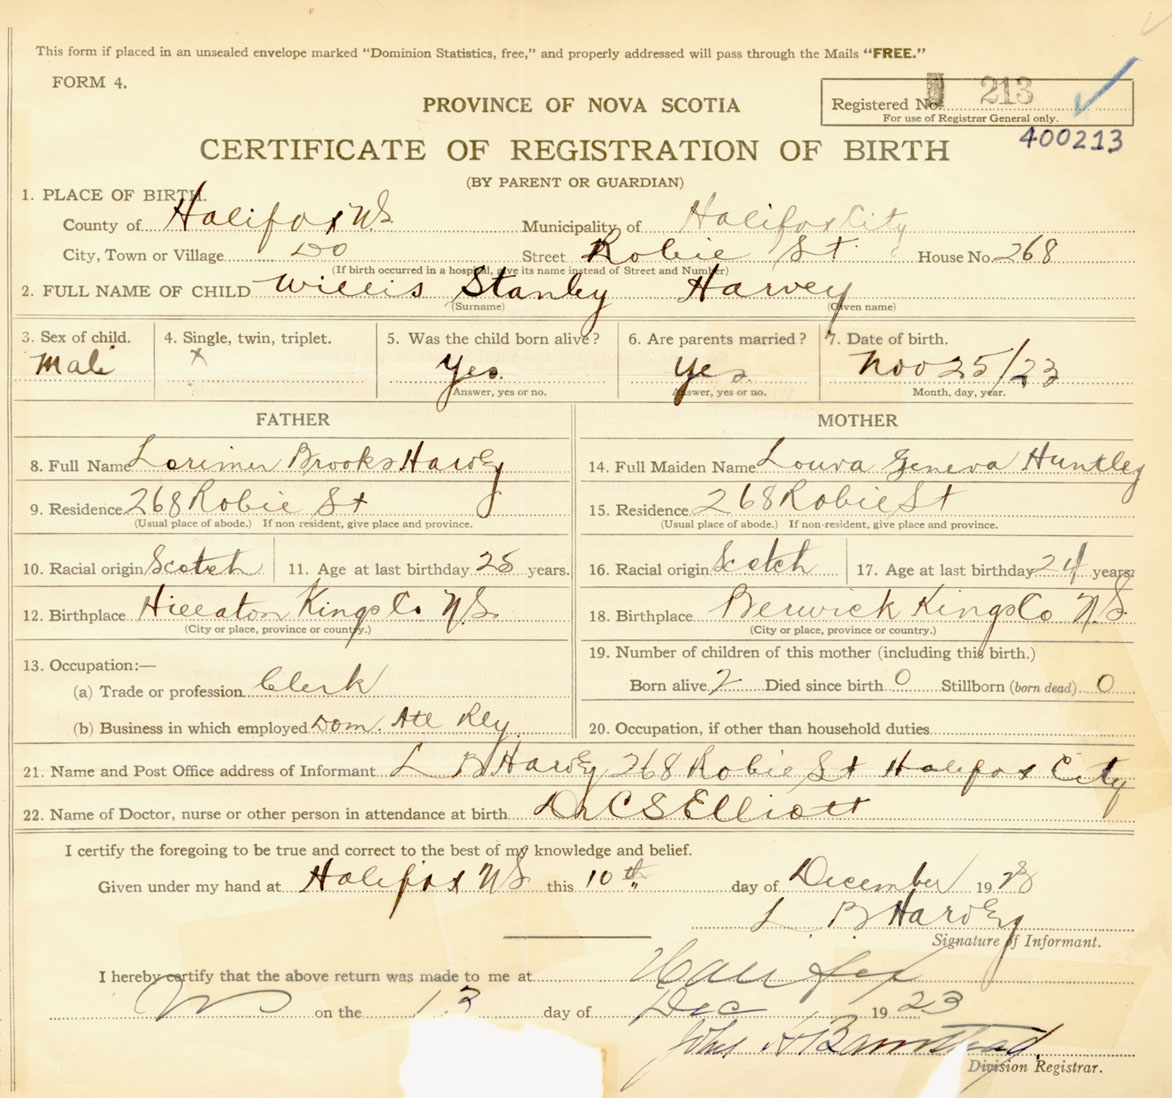 This form if placed in an unsealed envelope marked "Dominion Statistics, free," and properly addressed will pass through the Mails "FREE."
FORM 4.
PROVINCE OF NOVA SCOTIA
Registered No. 213
For use of Registrar General only.
400213
CERTIFICATE OF REGISTRATION OF BIRTH
(BY PARENT OR GUARDIAN)
1. PLACE OF BIRTH.
County of Halifax N.S. Municipality of Halifax City
City, Town or Village Do Street Robie St House No. 268
(If birth occurred in a hospital, give its name instead of Street and Number)
2. FULL NAME OF CHILD Willis Stanley Harvey
(Surname) (Given name)
3. Sex of child. 4. Single, twin, triplet. 5. Was the child born alive? 6. Are parents married? 7. Date of birth.
Male x Yes Yes Nov 25/23
Answer, yes or no. Answer, yes or no. Month, day, year.
FATHER MOTHER
8. Full Name Lorimer Brooks Harvey 14. Full Maiden Name Louva Geneva Huntley
9. Residence 268 Robie St 15. Residence 268 Robie St
(Usual place of abode.) If non-resident, give place and province. (Usual place of abode.) If non-resident, give place and province.
10. Racial origin Scotch 11. Age at last birthday 25 years. 16. Racial origin Scotch 17. Age at last birthday 24 years.
12. Birthplace Hillaton Kings Co N.S. 18. Birthplace Berwick Kings Co N.S.
(City or place, province or country.) (City or place, province or country.)
13. Occupation:— 19. Number of children of this mother (including this birth.)
(a) Trade or profession Clerk Born alive 2 Died since birth 0 Stillborn (born dead) 0
(b) Business in which employed Dom. Atl Rly. 20. Occupation, if other than household duties
21. Name and Post Office address of Informant L B Harvey 268 Robie St Halifax City
22. Name of Doctor, nurse or other person in attendance at birth Dr C S Elliott
I certify the foregoing to be true and correct to the best of my knowledge and belief.
Given under my hand at Halifax NS this 10th day of December 1923
L. B. Harvey
Signature of Informant.
I hereby certify that the above return was made to me at Halifax
NS on the 13 day of Dec 1923
John H Barnstead
Division Registrar.